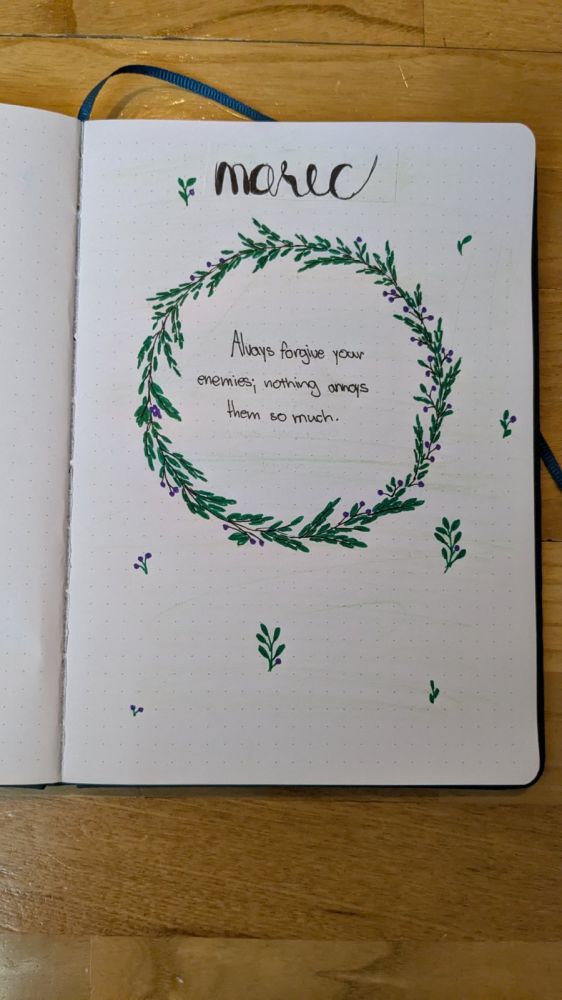 marec
Always forgive your
enemies; nothing annoys
them so much.